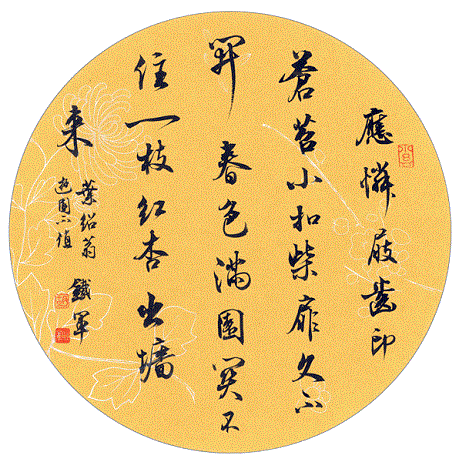 應憐屐齒印
蒼苔小扣柴扉久不
開春色滿園關不
住一枝紅杏出墻
来
葉紹翁
遊園不值
鐵軍